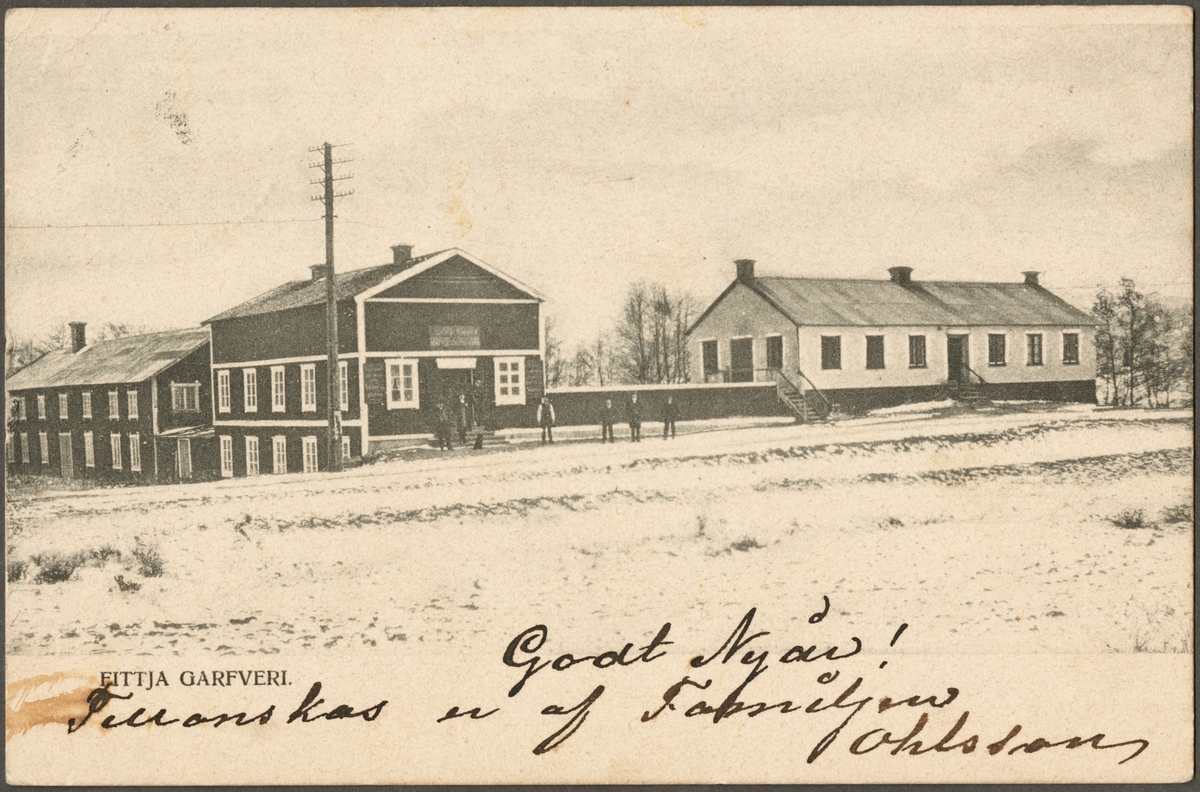 FITTJA GARFVERI.
Godt Nyår!
Tillönskas er af Familjen
Ohlsson